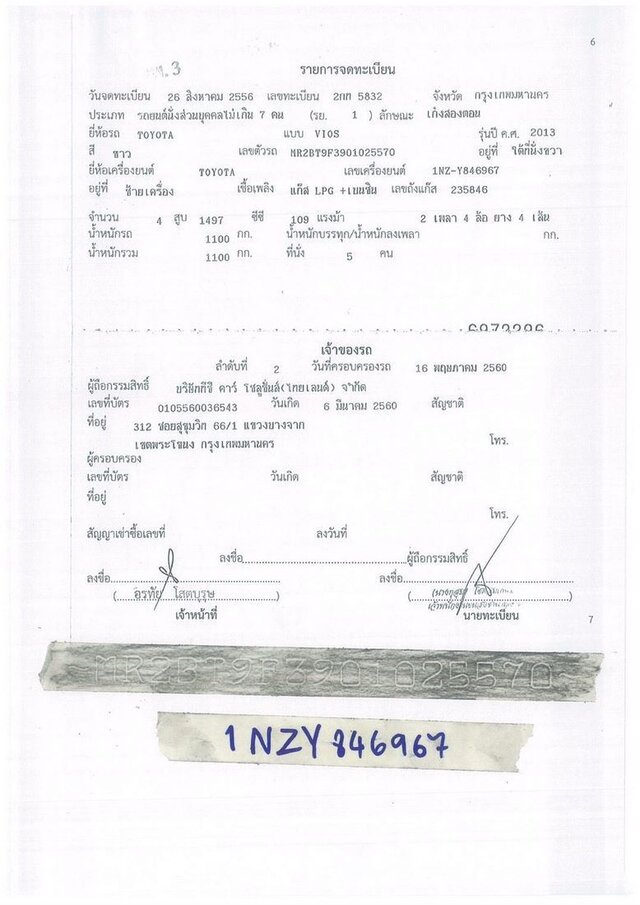 6
รายการจดทะเบียน
วันจดทะเบียน 26 สิงหาคม 2556 เลขทะเบียน 2กก 5832 จังหวัด กรุงเทพมหานคร
ประเภท รถยนต์นั่งส่วนบุคคลไม่เกิน 7 คน (รย. 1 ) ลักษณะ เก๋งสองตอน
ยี่ห้อรถ TOYOTA แบบ VIOS รุ่นปี ค.ศ. 2013
สี ขาว เลขตัวรถ MR2BT9F3901025570 อยู่ที่ ใต้ที่นั่งขวา
ยี่ห้อเครื่องยนต์ TOYOTA เลขเครื่องยนต์ 1NZ-Y846967
อยู่ที่ ซ้ายเครื่อง เชื้อเพลิง แก๊ส LPG +เบนซิน เลขถังแก๊ส 235846
จำนวน 4 สูบ 1497 ซีซี 109 แรงม้า 2 เพลา 4 ล้อ ยาง 4 เส้น
น้ำหนักรถ 1100 กก. น้ำหนักบรรทุก/น้ำหนักลงเพลา กก.
น้ำหนักรวม 1100 กก. ที่นั่ง 5 คน
เจ้าของรถ
ลำดับที่ 2 วันที่ครอบครองรถ 16 พฤษภาคม 2560
ผู้ถือกรรมสิทธิ์ บริษัททีซี คาร์ โซลูชั่นส์(ไทยแลนด์) จำกัด
เลขที่บัตร 0105560036543 วันเกิด 6 มีนาคม 2560 สัญชาติ
ที่อยู่ 312 ซอยสุขุมวิท 66/1 แขวงบางจาก
เขตพระโขนง กรุงเทพมหานคร โทร.
ผู้ครอบครอง
เลขที่บัตร วันเกิด สัญชาติ
ที่อยู่
โทร.
สัญญาเช่าซื้อเลขที่ ลงวันที่
ลงชื่อ ผู้ถือกรรมสิทธิ์
ลงชื่อ ลงชื่อ
( อรทัย โสตบุรุษ )
เจ้าหน้าที่ นายทะเบียน
7
MR2BT9F3901025570
1NZY846967